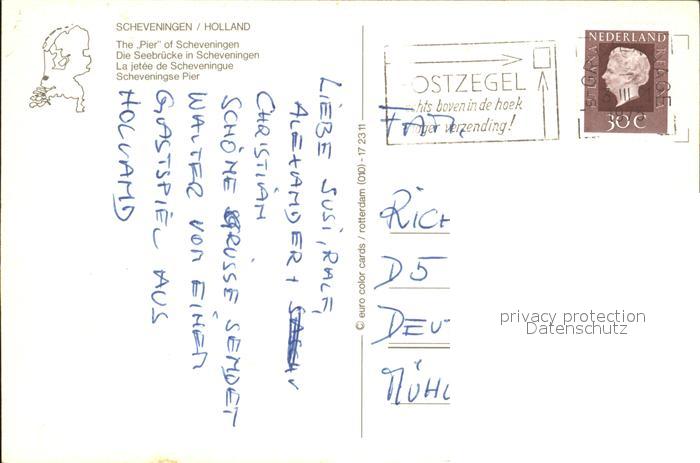 SCHEVENINGEN / HOLLAND
The „Pier” of Scheveningen
Die Seebrücke in Scheveningen
La jetée de Scheveningue
Scheveningse Pier
LIEBE SUSI, RALF,
ALEXANDER +
CHRISTIAN
SCHÖNE GRÜSSE SENDET
WALTER VON EINEM
GASTSPIEL AUS
HOLLAND
© euro color cards / rotterdam (010) - 17 23 11
OSTZEGEL
chts boven in de hoek
verzending!
NEDERLAND
30 C
FAM.
RICH
D 5
DEU
MÜHL
privacy protection
Datenschutz